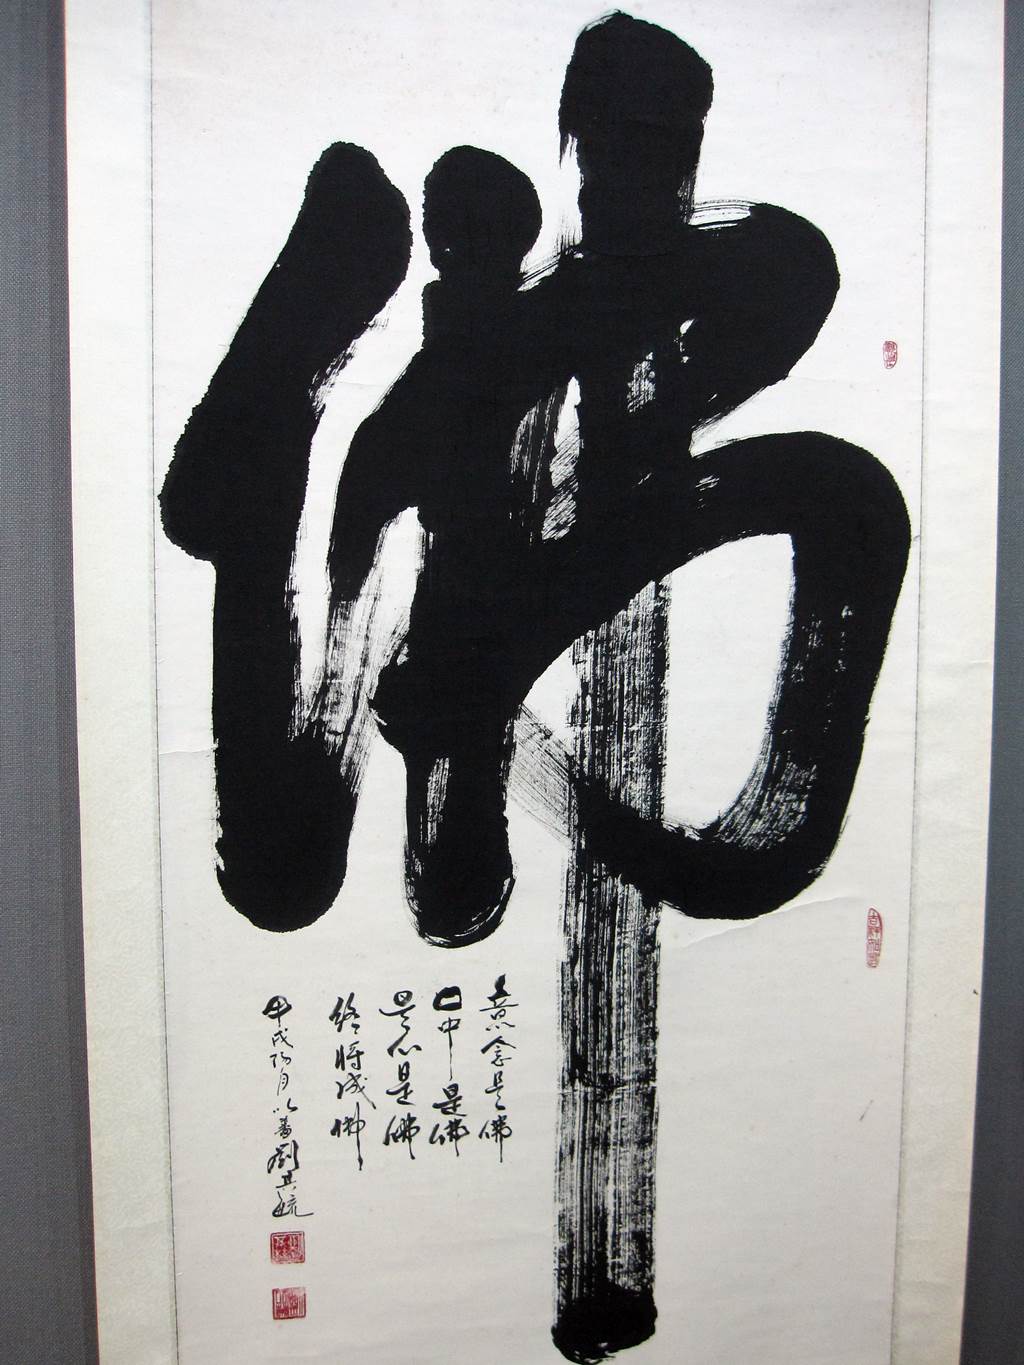 佛
意念是佛
口中是佛
是心是佛
終將成佛
甲戌陽月
劉其